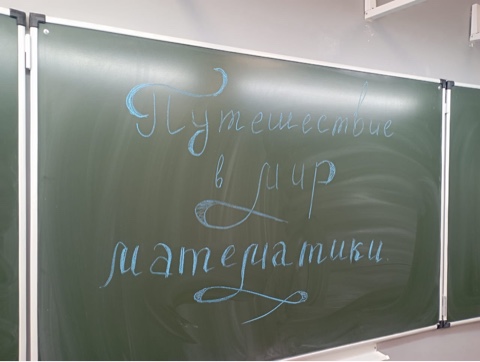 Путешествие
в мир
математики.